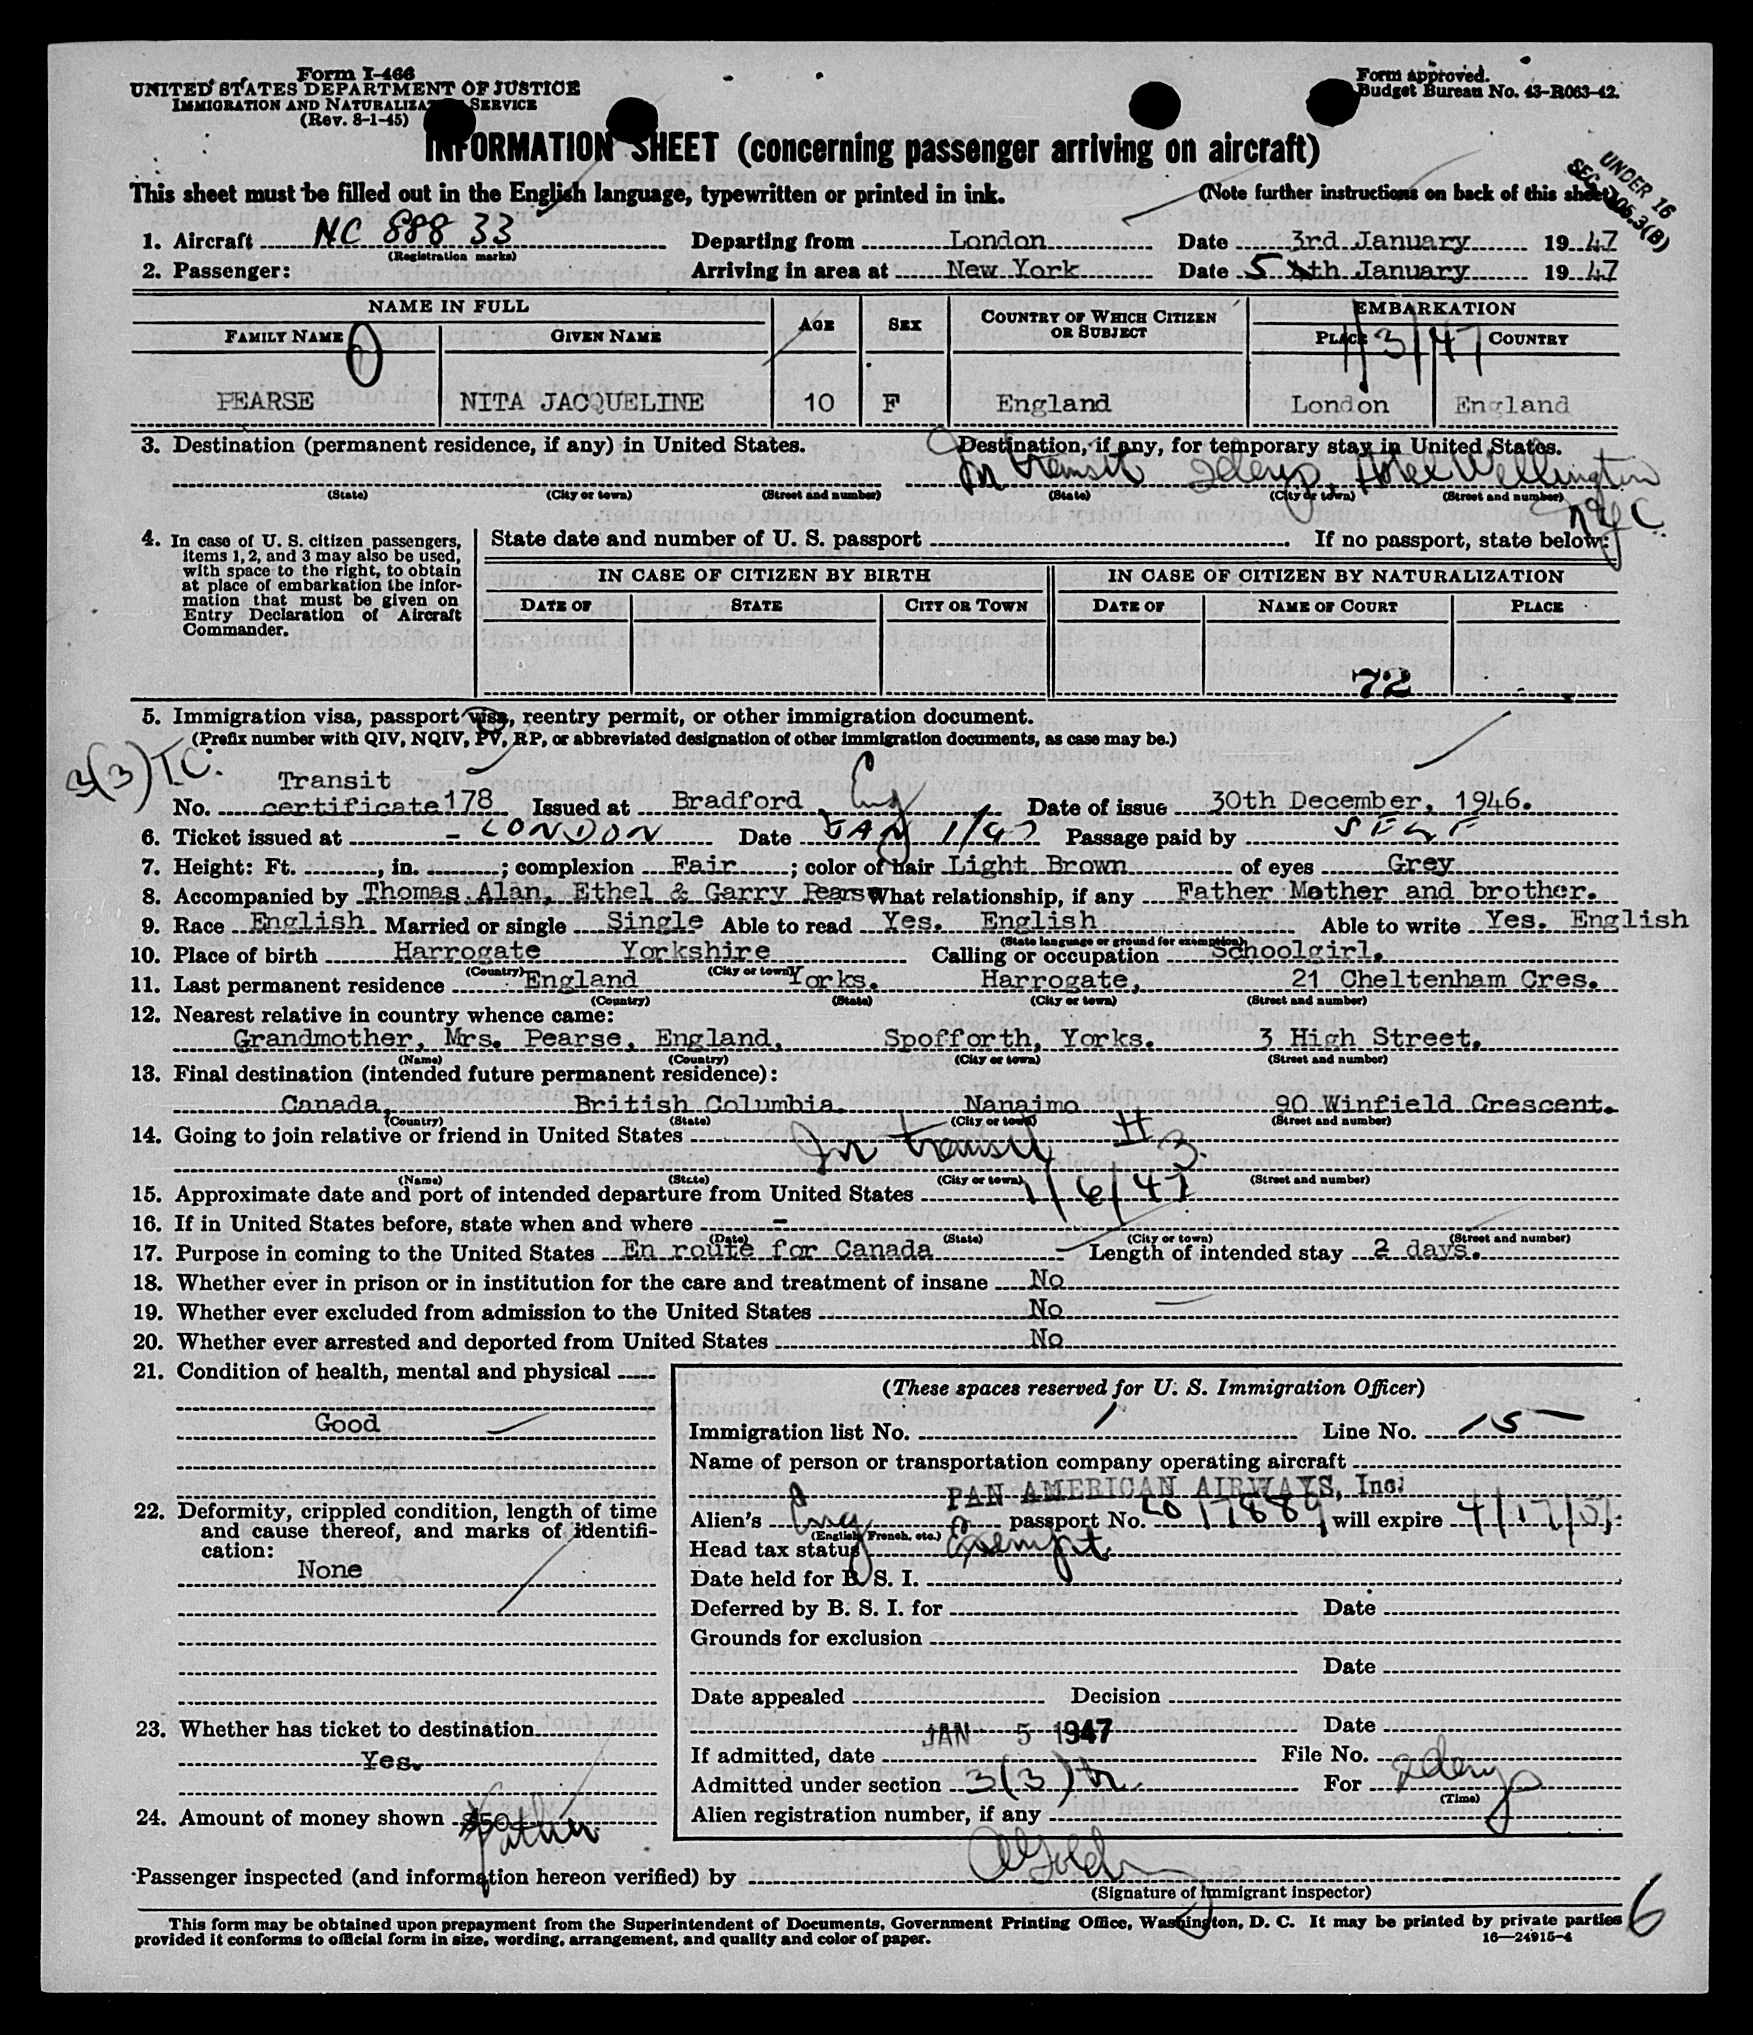 Form I-466
UNITED STATES DEPARTMENT OF JUSTICE
IMMIGRATION AND NATURALIZATION SERVICE
(Rev. 8-1-45)
Form approved.
Budget Bureau No. 43-R063-42.
INFORMATION SHEET (concerning passenger arriving on aircraft)
UNDER 16
SEC. 105.3(B)
This sheet must be filled out in the English language, typewritten or printed in ink. (Note further instructions on back of this sheet)
1. Aircraft NC 888 33 Departing from London Date 3rd January 19 47
(Registration marks)
2. Passenger: Arriving in area at New York Date 5 4th January 19 47
NAME IN FULL AGE SEX COUNTRY OF WHICH CITIZEN OR SUBJECT EMBARKATION
FAMILY NAME GIVEN NAME PLACE COUNTRY
1/3/47
PEARSE NITA JACQUELINE 10 F England London England
3. Destination (permanent residence, if any) in United States. Destination, if any, for temporary stay in United States.
In transit 2 days, Hotel Wellington
(State) (City or town) (Street and number) (State) (City or town) (Street and number)
NYC
4. In case of U. S. citizen passengers, items 1, 2, and 3 may also be used, with space to the right, to obtain at place of embarkation the information that must be given on Entry Declaration of Aircraft Commander.
State date and number of U. S. passport . If no passport, state below:
IN CASE OF CITIZEN BY BIRTH IN CASE OF CITIZEN BY NATURALIZATION
DATE OF STATE CITY OR TOWN DATE OF NAME OF COURT PLACE
72
5. Immigration visa, passport visa, reentry permit, or other immigration document.
(Prefix number with QIV, NQIV, PV, RP, or abbreviated designation of other immigration documents, as case may be.)
3(3) T.C.
Transit
No. certificate 178 Issued at Bradford, Eng Date of issue 30th December, 1946.
6. Ticket issued at - LONDON Date JAN 1/47 Passage paid by SELF
7. Height: Ft. , in. ; complexion Fair ; color of hair Light Brown of eyes Grey
8. Accompanied by Thomas Alan, Ethel & Garry Pearse What relationship, if any Father Mother and brother.
9. Race English Married or single Single Able to read Yes. English Able to write Yes. English
(State language or ground for exemption)
10. Place of birth Harrogate Yorkshire Calling or occupation Schoolgirl.
(Country) (City or town)
11. Last permanent residence England Yorks. Harrogate, 21 Cheltenham Cres.
(Country) (State) (City or town) (Street and number)
12. Nearest relative in country whence came:
Grandmother, Mrs. Pearse, England, Spofforth, Yorks. 3 High Street.
(Name) (Country) (City or town) (Street and number)
13. Final destination (intended future permanent residence):
Canada, British Columbia. Nanaimo 90 Winfield Crescent.
(Country) (State) (City or town) (Street and number)
14. Going to join relative or friend in United States In transit # 3.
(Name) (State) (City or town) (Street and number)
15. Approximate date and port of intended departure from United States 1/6/47
16. If in United States before, state when and where -
(Date) (State) (City or town) (Street and number)
17. Purpose in coming to the United States En route for Canada Length of intended stay 2 days.
18. Whether ever in prison or in institution for the care and treatment of insane No
19. Whether ever excluded from admission to the United States No
20. Whether ever arrested and deported from United States No
21. Condition of health, mental and physical
Good
22. Deformity, crippled condition, length of time and cause thereof, and marks of identification:
None
23. Whether has ticket to destination
Yes.
24. Amount of money shown $50 father
(These spaces reserved for U. S. Immigration Officer)
Immigration list No. 1 Line No. 15
Name of person or transportation company operating aircraft
PAN AMERICAN AIRWAYS, Inc.
Alien's Eng passport No. , will expire 4/17/51
(English, French, etc.)
Head tax status Exempt
Date held for B. S. I.
Deferred by B. S. I. for Date
Grounds for exclusion
Date
Date appealed Decision
Date
JAN 5 1947
If admitted, date File No.
Admitted under section 3(3) tr. For 2 days
(Time)
Alien registration number, if any
Passenger inspected (and information hereon verified) by
(Signature of immigrant inspector)
This form may be obtained upon prepayment from the Superintendent of Documents, Government Printing Office, Washington, D. C. It may be printed by private parties
provided it conforms to official form in size, wording, arrangement, and quality and color of paper.
16—24915-4
6